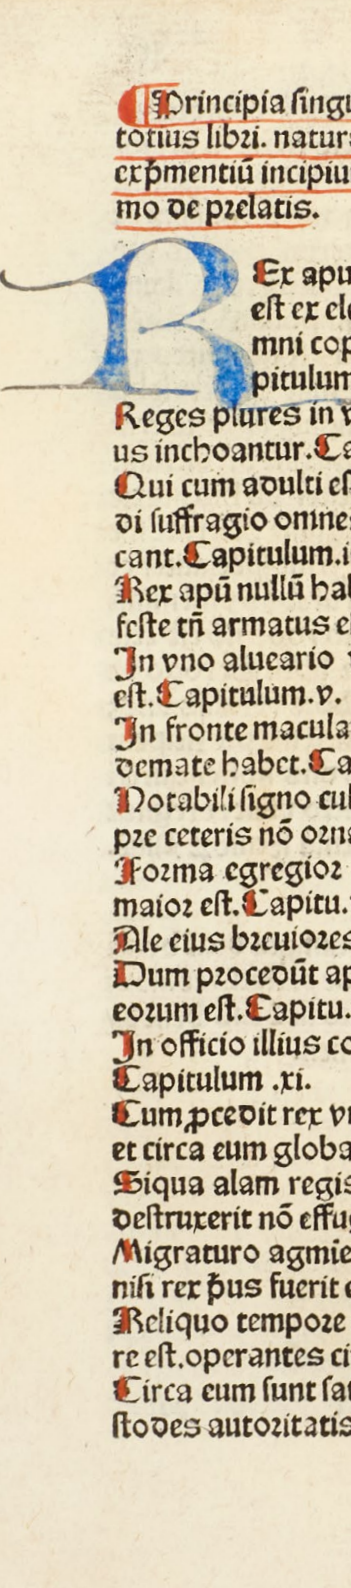 ¶ Principia singu
totius libri. natur
exꝑmentiū incipiu
mo de prelatis.
REx apu
est ex ele
mni cop
pitulum
Reges plures in v
us inchoantur. Ca
Qui cum adulti es
di suffragio omne
cant. Capitulum.i
Rex apū nullū hab
feste tñ armatus e
In vno alueario v
est. Capitulum.v.
In fronte macula
demate habet. Ca
Notabili signo cul
pre ceteris nō orna
Forma egregior
maior est. Capitu.
Ale eius breuiores
Dum procedūt ap
eorum est. Capitu.
In officio illius co
Capitulum .xi.
Cum ꝓcedit rex vn
et circa eum globa
Siqua alam regis
destruxerit nō effug
Migraturo agmie
nisi rex p̄us fuerit e
Reliquo tempore
re est. operantes ci
Circa eum sunt sat
stodes autoritatis